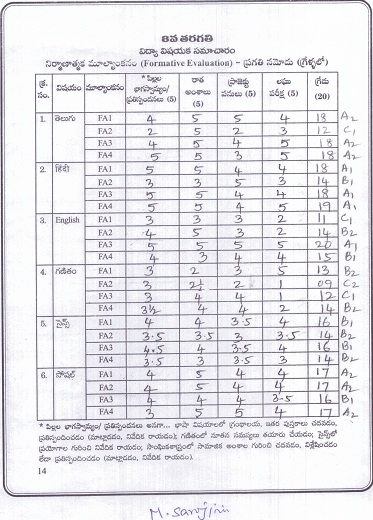 8వ తరగతి
విద్యా విషయక సమాచారం
నిర్మాణాత్మక మూల్యాంకనం (Formative Evaluation) - ప్రగతి నమోదు (గ్రేళ్ళలో)
క్ర. సం. విషయం మూల్యాంకనం * పిల్లల భాగస్వామ్యం/ ప్రతిస్పందనలు (5) రాత అంశాలు (5) ప్రాజెక్టు పనులు (5) లఘు పరీక్ష (5) గ్రేడు (20)
1. తెలుగు FA1 4 5 5 4 18 A2
FA2 2 5 2 3 12 C1
FA3 4 5 4 5 18 A2
FA4 5 5 3 5 18 A2
2. హిందీ FA1 5 5 4 4 18 A1
FA2 3 3 5 3 14 B1
FA3 5 5 4 4 18 A1
FA4 5 5 4 5 19 A1
3. English FA1 3 3 3 2 11 C1
FA2 4 5 3 2 14 B2
FA3 5 5 5 5 20 A1
FA4 4 3 4 4 15 B1
4. గణితం FA1 3 2 3 5 13 B2
FA2 3 2½ 2 1 09 C2
FA3 3 4 4 1 12 C1
FA4 3½ 4 4 2 14 B2
5. సైన్స్ FA1 4 4 3.5 4 16 B1
FA2 3.5 3.5 3 3.5 14 B2
FA3 4.5 4 3.5 4 16 B1
FA4 3.5 3 3.5 3 14 B2
6. సోషల్ FA1 4 5 4 4 17 A2
FA2 4 5 4 4 17 A2
FA3 4 4 4 3.5 16 B1
FA4 3 5 5 4 17 A2
* పిల్లల భాగస్వామ్యం/ ప్రతిస్పందనలు అనగా... భాషా విషయాలలో గ్రంథాలయ, ఇతర పుస్తకాలు చదవడం,
ప్రతిస్పందించడం (మాట్లాడడం, నివేదిక రాయడం); గణితంలో నూతన సమస్యలు తయారు చేయడం; సైన్స్‌లో
ప్రయోగాల గురించి నివేదిక రాయడం; సాంఘికశాస్త్రంలో సామాజిక అంశాల గురించి చదవడం, విశ్లేషించడం
లేదా ప్రతిస్పందించడం (మాట్లాడడం, నివేదిక రాయడం).
14